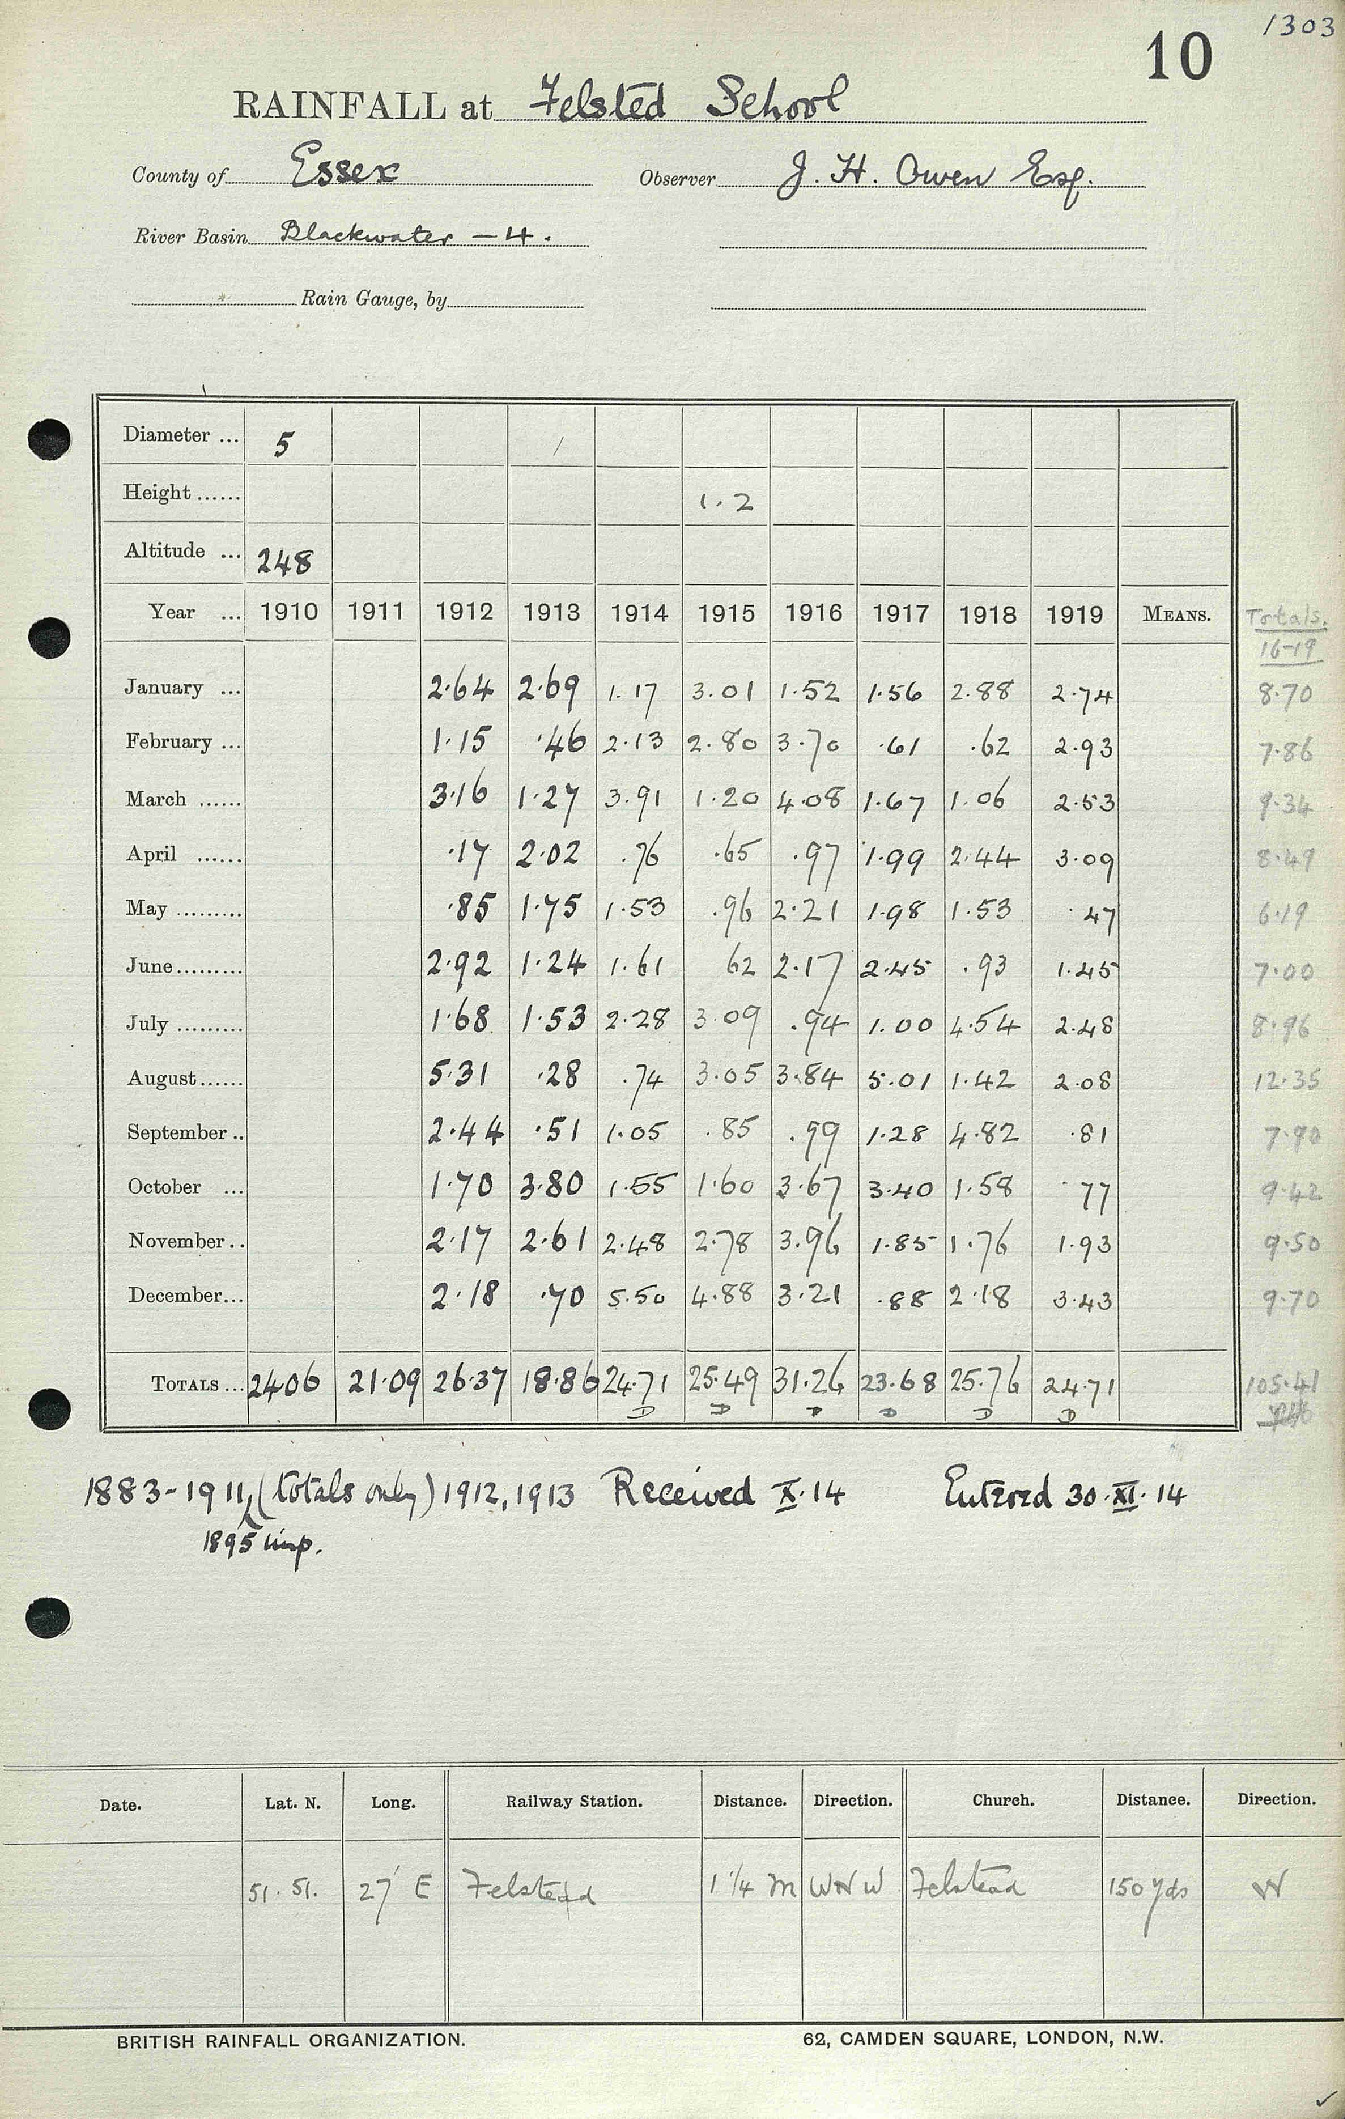 1303
10
RAINFALL at Felsted School
County of Essex Observer J. H. Owen Esq.
River Basin Blackwater - 4.
Rain Gauge, by
Diameter ... 5
Height ...... 1.2
Altitude ... 248
Year ... 1910 1911 1912 1913 1914 1915 1916 1917 1918 1919 MEANS. Totals.
16-19
January ... 2.64 2.69 1.17 3.01 1.52 1.56 2.88 2.74 8.70
February ... 1.15 .46 2.13 2.80 3.70 .61 .62 2.93 7.86
March ...... 3.16 1.27 3.91 1.20 4.08 1.67 1.06 2.53 9.34
April ...... .17 2.02 .76 .65 .97 1.99 2.44 3.09 8.49
May ......... .85 1.75 1.53 .96 2.21 1.98 1.53 .47 6.19
June ......... 2.92 1.24 1.61 62 2.17 2.45 .93 1.45 7.00
July ......... 1.68 1.53 2.28 3.09 .94 1.00 4.54 2.48 8.96
August ...... 5.31 .28 .74 3.05 3.84 5.01 1.42 2.08 12.35
September .. 2.44 .51 1.05 .85 .99 1.28 4.82 .81 7.90
October ... 1.70 3.80 1.55 1.60 3.67 3.40 1.58 .77 9.42
November .. 2.17 2.61 2.48 2.78 3.96 1.85 1.76 1.93 9.50
December... 2.18 .70 5.50 4.88 3.21 .88 2.18 3.43 9.70
TOTALS ... 2406 21.09 26.37 18.86 24.71 25.49 31.26 23.68 25.76 24.71 105.41
D D D D D D
1883-1911, (totals only) 1912, 1913 Received X.14 Entered 30.XI.14
1895 imp.
Date. Lat. N. Long. Railway Station. Distance. Direction. Church. Distance. Direction.
51.51. 27' E Felstead 1 1/4 m WNW Felstead 150 yds W
BRITISH RAINFALL ORGANIZATION. 62, CAMDEN SQUARE, LONDON, N.W.